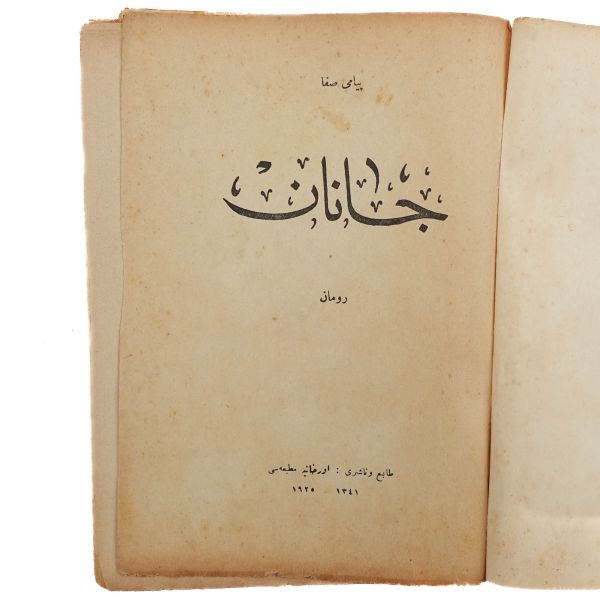 پیامی صفا
جانان
رومان
طابع و ناشری : اورخانیه مطبعه‌سی
۱۳٤۱ - ۱۹۲٥